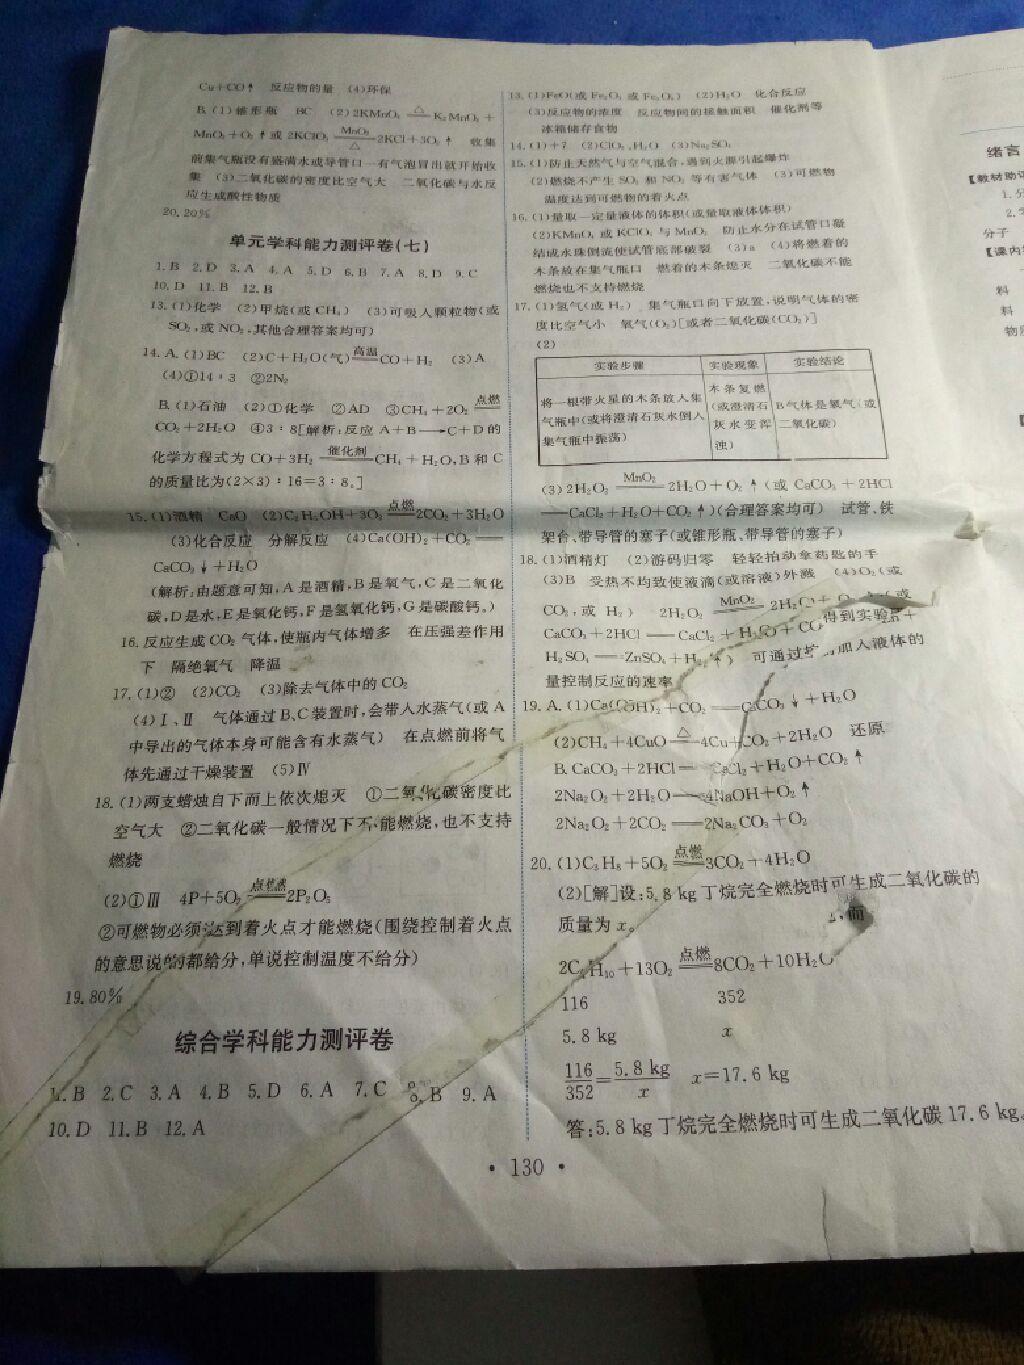 Cu+CO↑ 反应物的量 (4)环保
B.(1)锥形瓶 BC (2)2KMnO₄ ≜(△) K₂MnO₄+
MnO₂+O₂↑或 2KClO₃ =(MnO₂/△)= 2KCl+3O₂↑ 收集
前集气瓶没有盛满水或导管口一有气泡冒出就开始收
集 (3)二氧化碳的密度比空气大 二氧化碳与水反
应生成酸性物质
20.20%
单元学科能力测评卷(七)
1.B 2.D 3.A 4.A 5.D 6.B 7.A 8.D 9.C
10.D 11.B 12.B
13.(1)化学 (2)甲烷(或CH₄) (3)可吸入颗粒物(或
SO₂,或NO₂,其他合理答案均可)
14.A.(1)BC (2)C+H₂O(气) =(高温)= CO+H₂ (3)A
(4)①14:3 ②2N₂
B.(1)石油 (2)①化学 ②AD ③CH₄+2O₂ =(点燃)=
CO₂+2H₂O ④3:8[解析:反应 A+B⟶C+D的
化学方程式为 CO+3H₂ =(催化剂)= CH₄+H₂O,B和C
的质量比为(2×3):16=3:8。]
15.(1)酒精 CaO (2)C₂H₅OH+3O₂ =(点燃)= 2CO₂+3H₂O
(3)化合反应 分解反应 (4)Ca(OH)₂+CO₂ ══
CaCO₃↓+H₂O
(解析:由题意可知,A是酒精,B是氧气,C是二氧化
碳,D是水,E是氧化钙,F是氢氧化钙,G是碳酸钙。)
16.反应生成CO₂气体,使瓶内气体增多 在压强差作用
下 隔绝氧气 降温
17.(1)② (2)CO₂ (3)除去气体中的CO₂
(4)Ⅰ、Ⅱ 气体通过B、C装置时,会带入水蒸气(或A
中导出的气体本身可能含有水蒸气) 在点燃前将气
体先通过干燥装置 (5)Ⅳ
18.(1)两支蜡烛自下而上依次熄灭 ①二氧化碳密度比
空气大 ②二氧化碳一般情况下不能燃烧,也不支持
燃烧
(2)①Ⅲ 4P+5O₂ =(点燃)= 2P₂O₅
②可燃物必须达到着火点才能燃烧(围绕控制着火点
的意思说的都给分,单说控制温度不给分)
19.80%
综合学科能力测评卷
1.B 2.C 3.A 4.B 5.D 6.A 7.C 8.B 9.A
10.D 11.B 12.A
13.(1)FeO(或Fe₂O₃或Fe₃O₄) (2)H₂O 化合反应
(3)反应物的浓度 反应物间的接触面积 催化剂等
冰箱储存食物
14.(1)+7 (2)ClO₂、H₂O (3)Na₂SO₄
15.(1)防止天然气与空气混合,遇到火源引起爆炸
(2)燃烧不产生SO₂和NO₂等有害气体 (3)可燃物
温度达到可燃物的着火点
16.(1)量取一定量液体的体积(或量取液体体积)
(2)KMnO₄或KClO₃与MnO₂ 防止水分在试管口凝
结成水珠倒流使试管底部破裂 (3)a (4)将燃着的
木条放在集气瓶口 燃着的木条熄灭 二氧化碳不能
燃烧也不支持燃烧
17.(1)氢气(或H₂) 集气瓶口向下放置,说明气体的密
度比空气小 氧气(O₂)[或者二氧化碳(CO₂)]
(2)
实验步骤 实验现象 实验结论
将一根带火星的木条放入集气瓶中(或将澄清石灰水倒入集气瓶中振荡) 木条复燃(或澄清石灰水变浑浊) B气体是氧气(或二氧化碳)
(3)2H₂O₂ =(MnO₂)= 2H₂O+O₂↑(或CaCO₃+2HCl
══CaCl₂+H₂O+CO₂↑)(合理答案均可) 试管、铁
架台、带导管的塞子(或锥形瓶、带导管的塞子)
18.(1)酒精灯 (2)游码归零 轻轻拍动拿药匙的手
(3)B 受热不均致使液滴(或溶液)外溅 (4)O₂(或
CO₂,或H₂) 2H₂O₂ =(MnO₂)= 2H₂O+O₂ (或
CaCO₃+2HCl══CaCl₂+H₂O+CO 得到实验 +
H₂SO₄══ZnSO₄+H₂↑) 可通过 加入液体的
量控制反应的速率
19.A.(1)Ca(OH)₂+CO₂══CaCO₃↓+H₂O
(2)CH₄+4CuO =(△)= 4Cu+CO₂+2H₂O 还原
B.CaCO₃+2HCl══CaCl₂+H₂O+CO₂↑
2Na₂O₂+2H₂O══4NaOH+O₂↑
2Na₂O₂+2CO₂══2Na₂CO₃+O₂
20.(1)C₃H₈+5O₂ =(点燃)= 3CO₂+4H₂O
(2)[解]设:5.8 kg丁烷完全燃烧时可生成二氧化碳的
质量为x。 ,面
2C₄H₁₀+13O₂ =(点燃)= 8CO₂+10H₂O
116 352
5.8 kg x
116/352=5.8 kg/x x=17.6 kg
答:5.8 kg丁烷完全燃烧时可生成二氧化碳17.6 kg。
• 130 •
绪言
【教材助
1.
2.
分子
【课内
料
料
物